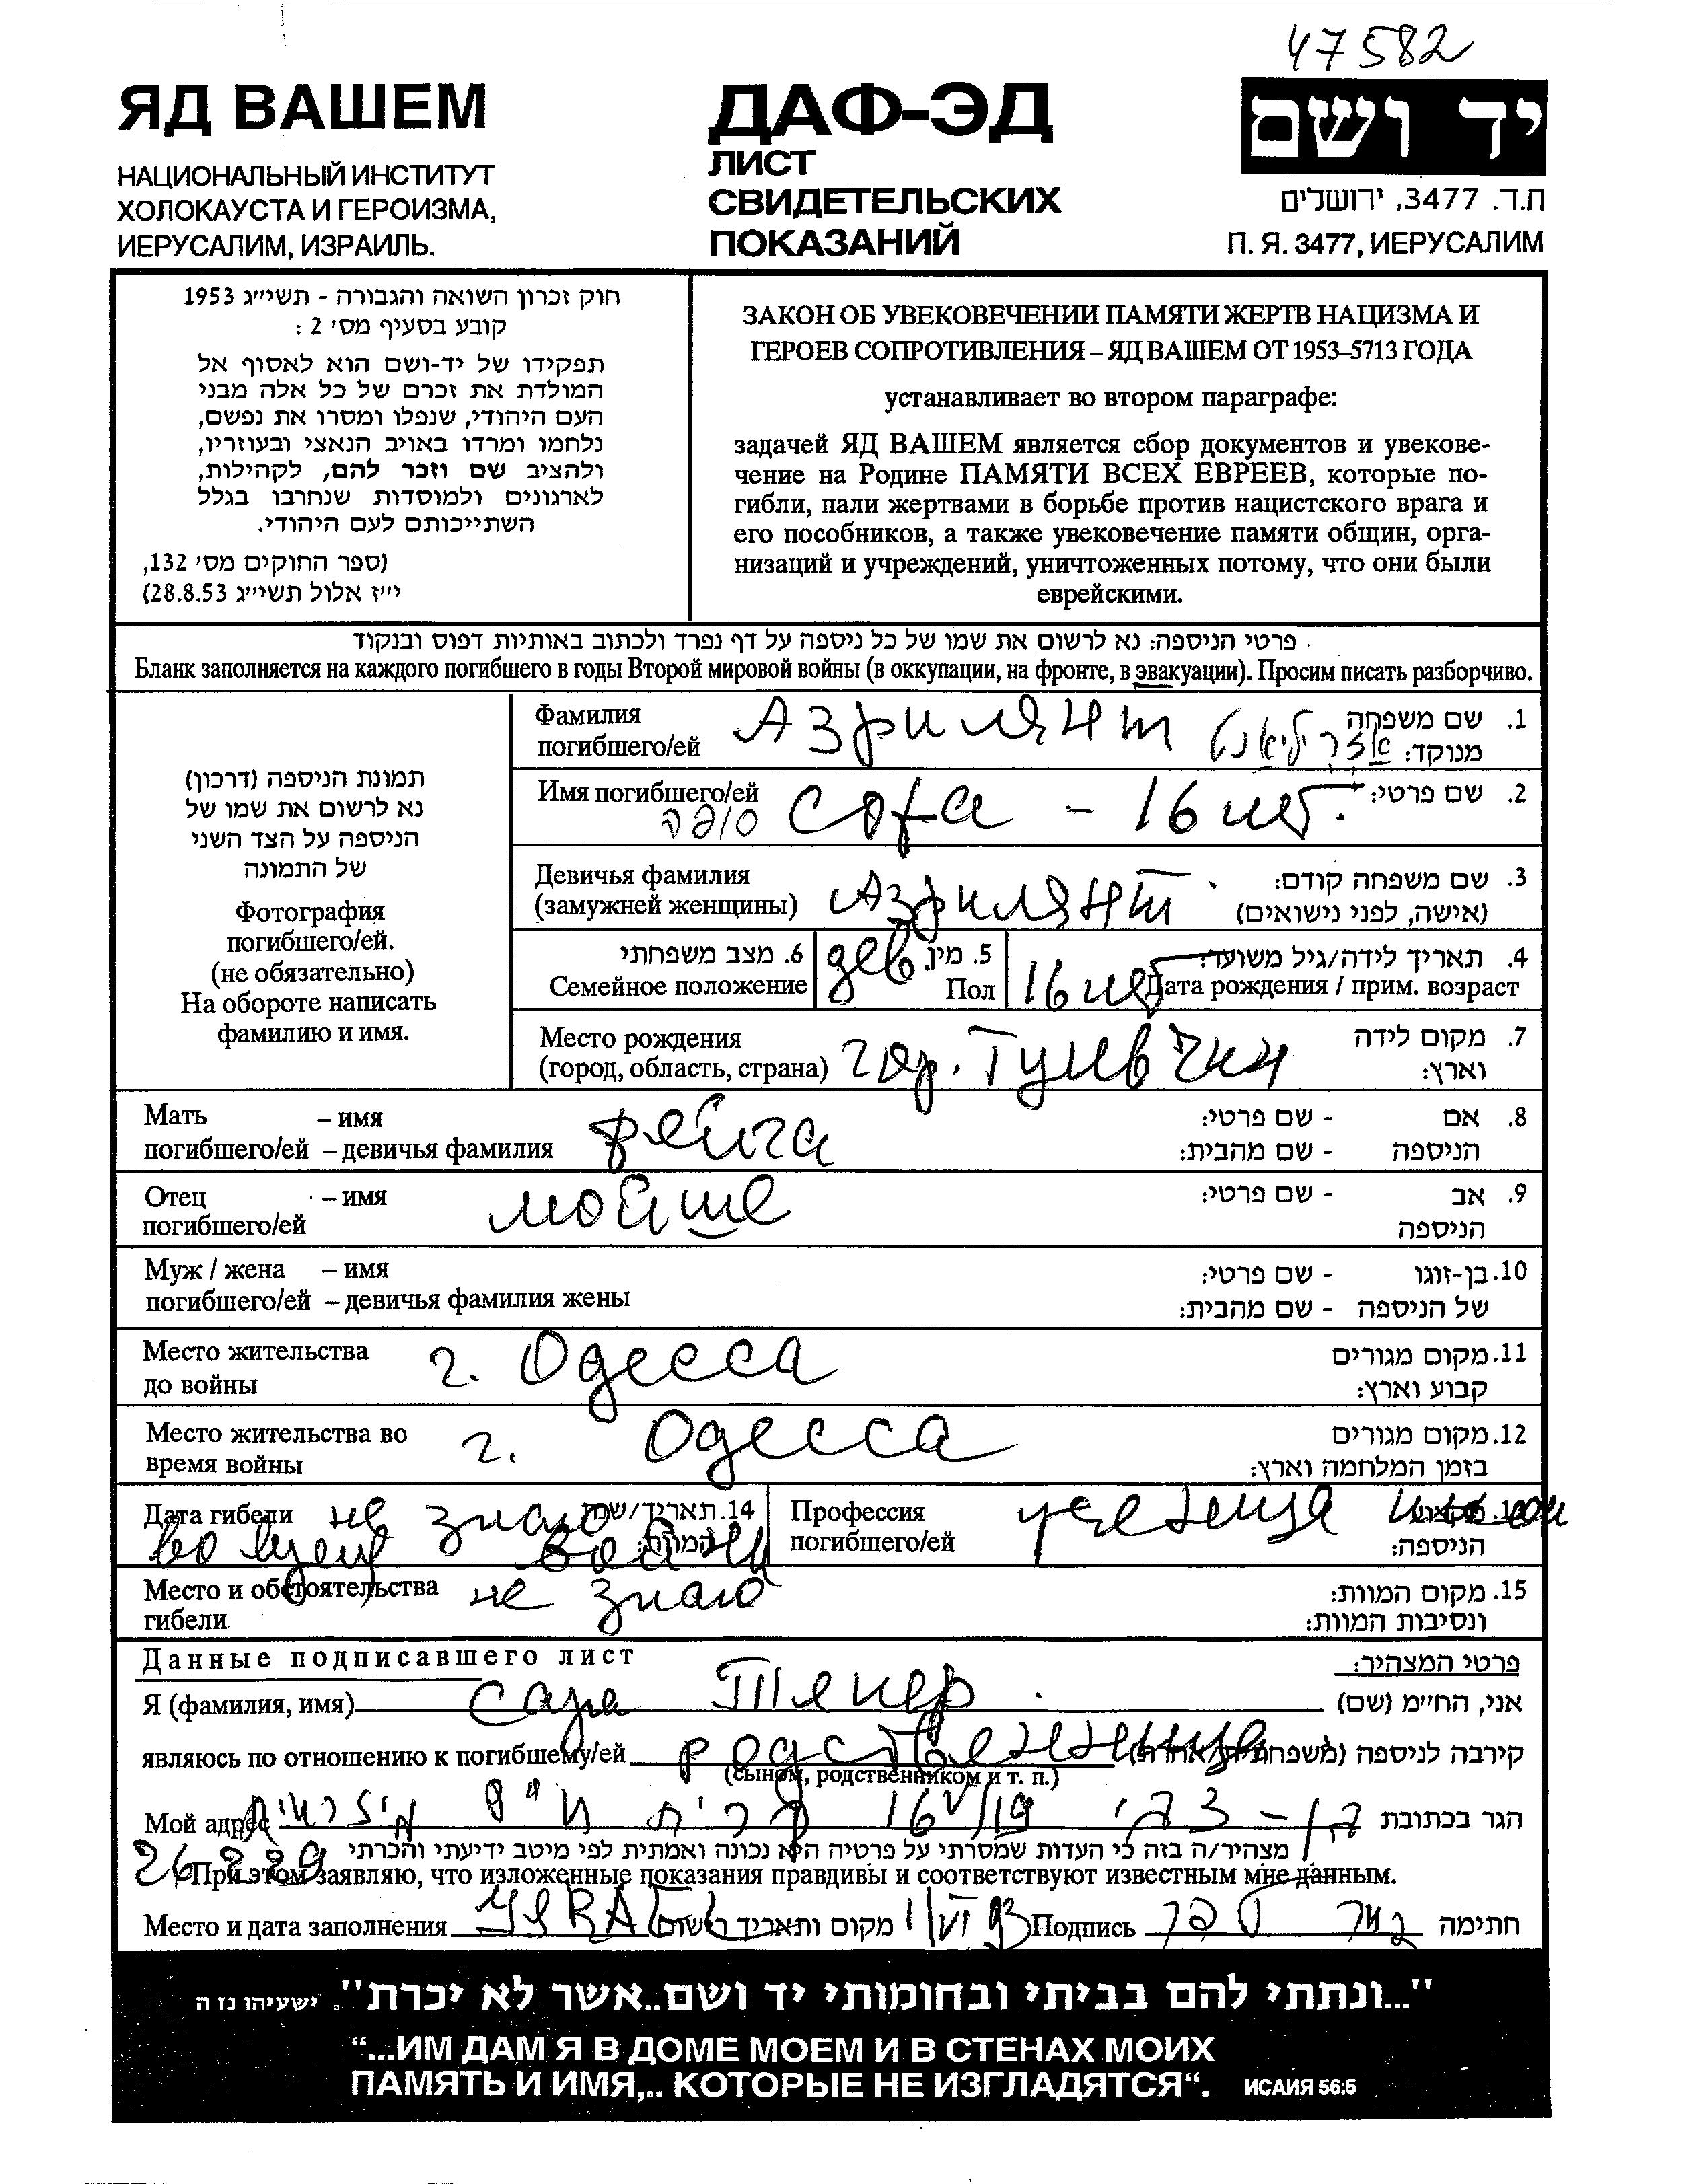 47582
ЯД ВАШЕМ
НАЦИОНАЛЬНЫЙ ИНСТИТУТ
ХОЛОКАУСТА И ГЕРОИЗМА,
ИЕРУСАЛИМ, ИЗРАИЛЬ.
ДАФ-ЭД
ЛИСТ
СВИДЕТЕЛЬСКИХ
ПОКАЗАНИЙ
יד ושם
ת.ד. 3477, ירושלים
П. Я. 3477, ИЕРУСАЛИМ
חוק זכרון השואה והגבורה - תשי״ג 1953
קובע בסעיף מס׳ 2 :
תפקידו של יד-ושם הוא לאסוף אל
המולדת את זכרם של כל אלה מבני
העם היהודי, שנפלו ומסרו את נפשם,
נלחמו ומרדו באויב הנאצי ובעוזריו,
ולהציב שם וזכר להם, לקהילות,
לארגונים ולמוסדות שנחרבו בגלל
השתייכותם לעם היהודי.
(ספר החוקים מס׳ 132,
י״ז אלול תשי״ג 28.8.53)
ЗАКОН ОБ УВЕКОВЕЧЕНИИ ПАМЯТИ ЖЕРТВ НАЦИЗМА И
ГЕРОЕВ СОПРОТИВЛЕНИЯ – ЯД ВАШЕМ ОТ 1953–5713 ГОДА
устанавливает во втором параграфе:
задачей ЯД ВАШЕМ является сбор документов и увекове-
чение на Родине ПАМЯТИ ВСЕХ ЕВРЕЕВ, которые по-
гибли, пали жертвами в борьбе против нацистского врага и
его пособников, а также увековечение памяти общин, орга-
низаций и учреждений, уничтоженных потому, что они были
еврейскими.
פרטי הניספה: נא לרשום את שמו של כל ניספה על דף נפרד ולכתוב באותיות דפוס ובנקוד
Бланк заполняется на каждого погибшего в годы Второй мировой войны (в оккупации, на фронте, в эвакуации). Просим писать разборчиво.
תמונת הניספה (דרכון)
נא לרשום את שמו של
הניספה על הצד השני
של התמונה
Фотография
погибшего/ей.
(не обязательно)
На обороте написать
фамилию и имя.
Фамилия
погибшего/ей Азрилянт אזריליאנט
1. שם משפחה
מנוקד:
Имя погибшего/ей Софа – 16 лет. 2. שם פרטי:
סופה
Девичья фамилия
(замужней женщины) Азрилянт
3. שם משפחה קודם:
(אישה, לפני נישואים)
6. מצב משפחתי
Семейное положение
дев. 5. מין
Пол
16 лет 4. תאריך לידה/גיל משוער:
Дата рождения / прим. возраст
Место рождения
(город, область, страна) гор.
7. מקום לידה
וארץ:
Мать – имя
погибшего/ей – девичья фамилия Фейга
8. אם - שם פרטי:
הניספה - שם מהבית:
Отец – имя
погибшего/ей Мойше
9. אב - שם פרטי:
הניספה
Муж / жена – имя
погибшего/ей – девичья фамилия жены
10. בן-זוגו - שם פרטי:
של הניספה - שם מהבית:
Место жительства
до войны г. Одесса
11. מקום מגורים
קבוע וארץ:
Место жительства во
время войны г. Одесса
12. מקום מגורים
בזמן המלחמה וארץ:
Дата гибели не знаю 14. תאריך/שנת
во время войны המוות:
Профессия
погибшего/ей ученица школы
הניספה:
Место и обстоятельства
гибели не знаю
15. מקום המוות:
ונסיבות המוות:
Данные подписавшего лист פרטי המצהיר:
Я (фамилия, имя) Сара אני, החי״מ (שם)
являюсь по отношению к погибшему/ей родственница קירבה לניספה (משפחתית/אחרת)
(сыном, родственником и т. п.)
Мой адрес קרית הגר בכתובת
מצהיר/ה בזה כי העדות שמסרתי על פרטיה היא נכונה ואמתית לפי מיטב ידיעתי והכרתי
При этом заявляю, что изложенные показания правдивы и соответствуют известным мне данным.
Место и дата заполнения מקום ותאריך רישום Подпись חתימה
״...ונתתי להם בביתי ובחומותי יד ושם..אשר לא יכרת״. ישעיהו נז ה
“...ИМ ДАМ Я В ДОМЕ МОЕМ И В СТЕНАХ МОИХ
ПАМЯТЬ И ИМЯ,.. КОТОРЫЕ НЕ ИЗГЛАДЯТСЯ“. ИСАИЯ 56:5